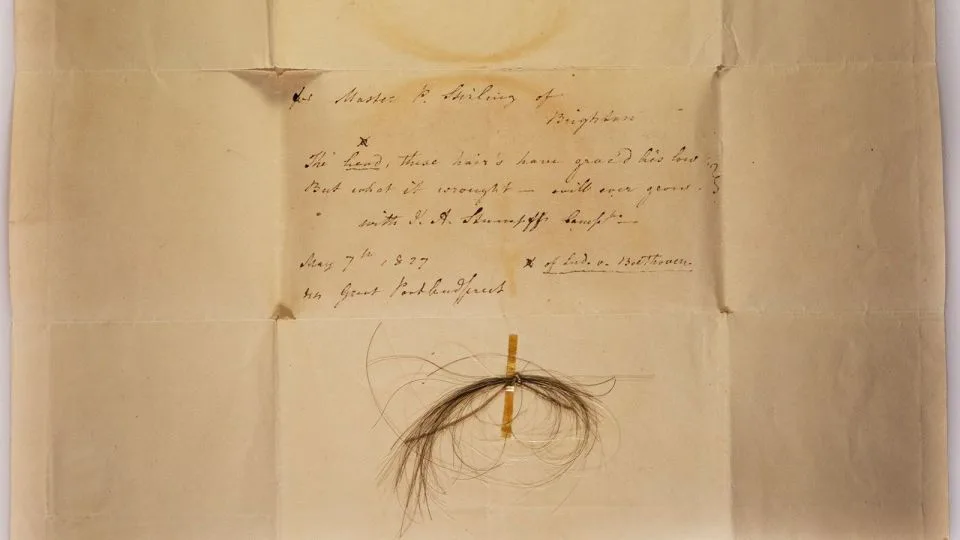 for Master P. Stirling of
Brighton
x
The head, these hair's have grac'd lies low
But what it wrought — will ever grow.
with J. A. Stumpff's Compts.
May 7th, 1827 x of Lud. v. Beethoven.
Great Portland Street